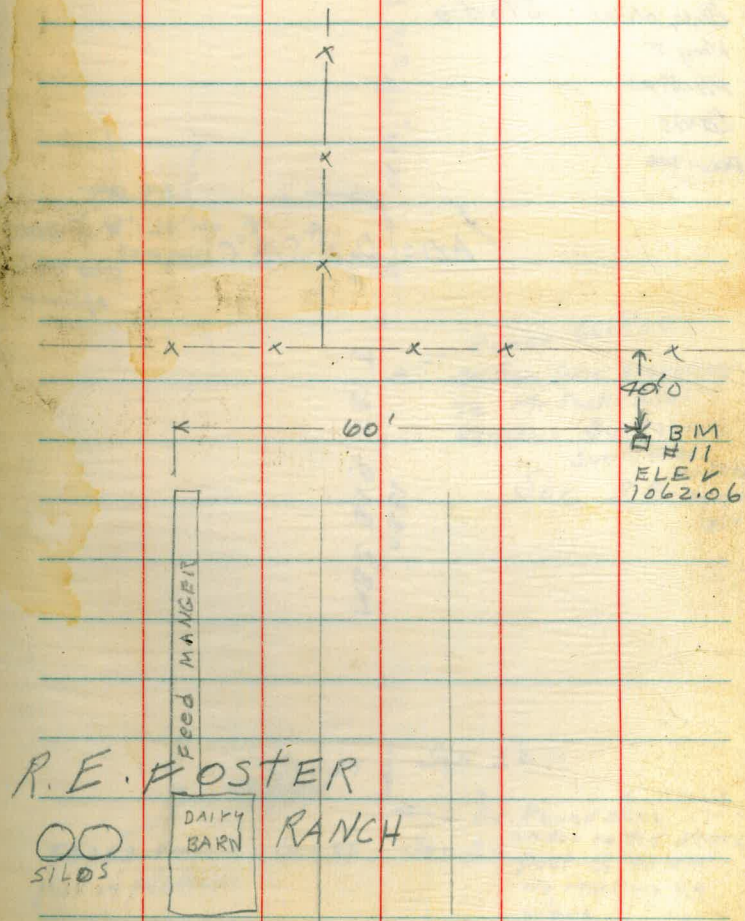 40.0
60'
BM
#11
ELEV
1062.06
Feed MANGER
R. E. FOSTER
RANCH
DAIRY
BARN
SILOS